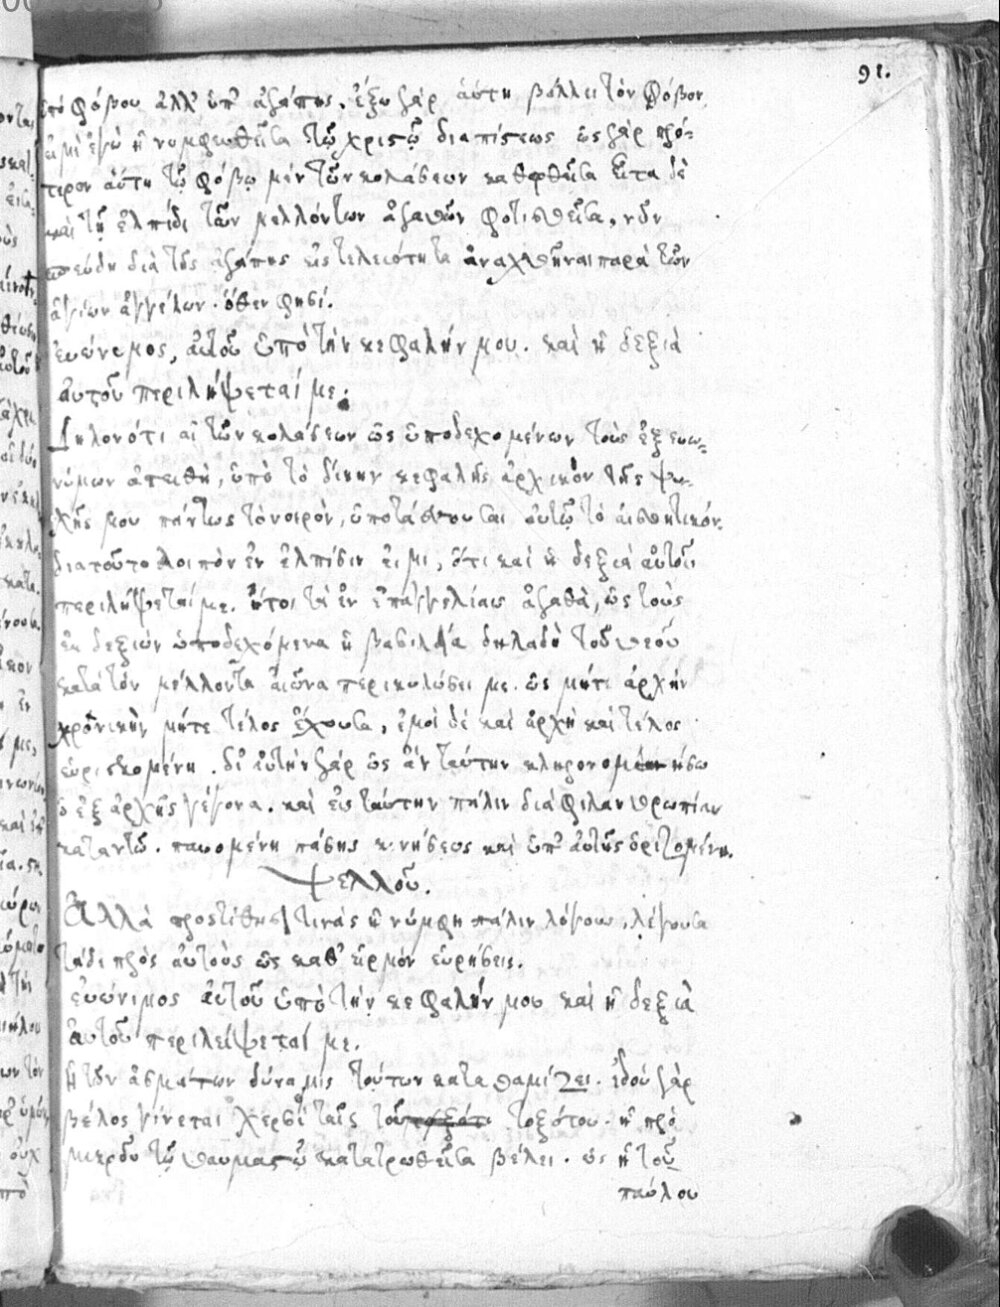 91.
ὑπὸ φόβου ἀλλ' ὑπ' ἀγάπης. ἔξω γὰρ αὕτη βάλλει τὸν φόβον
εἰμὶ ἐγὼ ἡ νυμφευθεῖσα τῷ χριστῷ διαπίστεως ὡς γὰρ πρό-
τερον αὕτη τῷ φόβῳ μὲν τῶν κολάσεων καθφθεῖσα εἶτα δὲ
καὶ τῇ ἐλπίδι τῶν μελλόντων ἀγαθῶν φοτισθεῖσα, νῦν
σπεύδη διὰ τῆς ἀγάπης εἰς τελειότητα ἀναχθῆναι παρὰ τῶν
ἁγίων ἀγγέλων. ὅθεν φησί.
εὐώνυμος, αὐτοῦ ὑπὸ τὴν κεφαλήν μου. καὶ ἡ δεξιὰ
αὐτοῦ περιλήψεταί με.
Δηλονότι αἱ τῶν κολάσεων ὡς ὑποδεχομένων τοὺς ἐξ ευω-
νύμων ἀπειθῆ, ὑπὸ τὸ δίκην κεφαλῆς ἀρχικὸν τῆς ψυ-
χῆς μου πάντως τὸ νοερὸν, ὑποτάσσουσαι αὐτῷ τὸ αἰσθητικόν.
διατοῦτο λοιπὸν ἐν ἐλπίσιν εἰμι, ὅτι καὶ ἡ δεξιὰ αὐτοῦ
περιλήψεταί με. ἤτοι τὰ ἐν ἐπαγγελίαις ἀγαθὰ, ὡς τοὺς
ἐκ δεξιῶν ὑποδεχόμενα ἡ βασιλεία δηλαδὴ τοῦ θεοῦ
κατὰ τὸν μέλλοντα αἰῶνα περικυλώσει με. ὡς μήτε ἀρχὴν
χρονικὴν μήτε τέλος ἔχουσα, ἐμοὶ δὲ καὶ ἀρχὴ καὶ τέλος
εὑρισκομένη. δι' αὐτὴν γὰρ ὡς ἂν ταύτην κληρονομήσω
ὁ ἐξ ἀρχῆς γέγονα. καὶ εἰς ταύτην πάλιν διὰ φιλανθρωπίαν
καταντῶ. παυομένη πάσης κινήσεως καὶ ὑπ' αὐτῆς ὁριζομένη.
Ψελλοῦ.
Ἀλλὰ προστίθησι τινὰς ἡ νύμφη πάλιν λόγους, λέγουσα
τάδε πρὸς αὐτοὺς ὡς καθ' εἱρμὸν εὑρήσεις.
εὐώνιμος αὐτοῦ ὑπὸ τὴν κεφαλήν μου καὶ ἡ δεξιὰ
αὐτοῦ περιλείψεταί με.
ἡ τῶν ᾀσμάτων δύναμις τούτων καταθαμίζει. ἰδοὺ γὰρ
βέλος γίνεται χερσὶ ταῖς τοῦ τοξότου. ἡ πρὸ
μικροῦ τῷ θαυμαστῷ κατατρωθεῖσα βέλει. ὡς ἡ τοῦ
παύλου